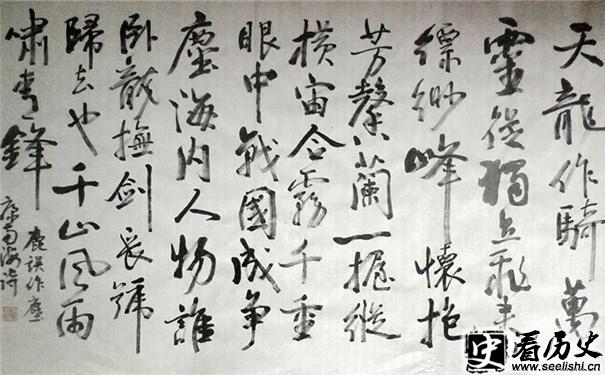 天龍作騎萬
靈從獨立飛來
縹緲峰懷抱
芳馨蘭一握縱
橫宙合霧千重
眼中戰國成爭
塵海内人物誰
卧龍撫劍長號
歸去也千山風雨
嘯青鋒
鹿誤作塵
康南海詩
史
看历史
www.seelishi.cn